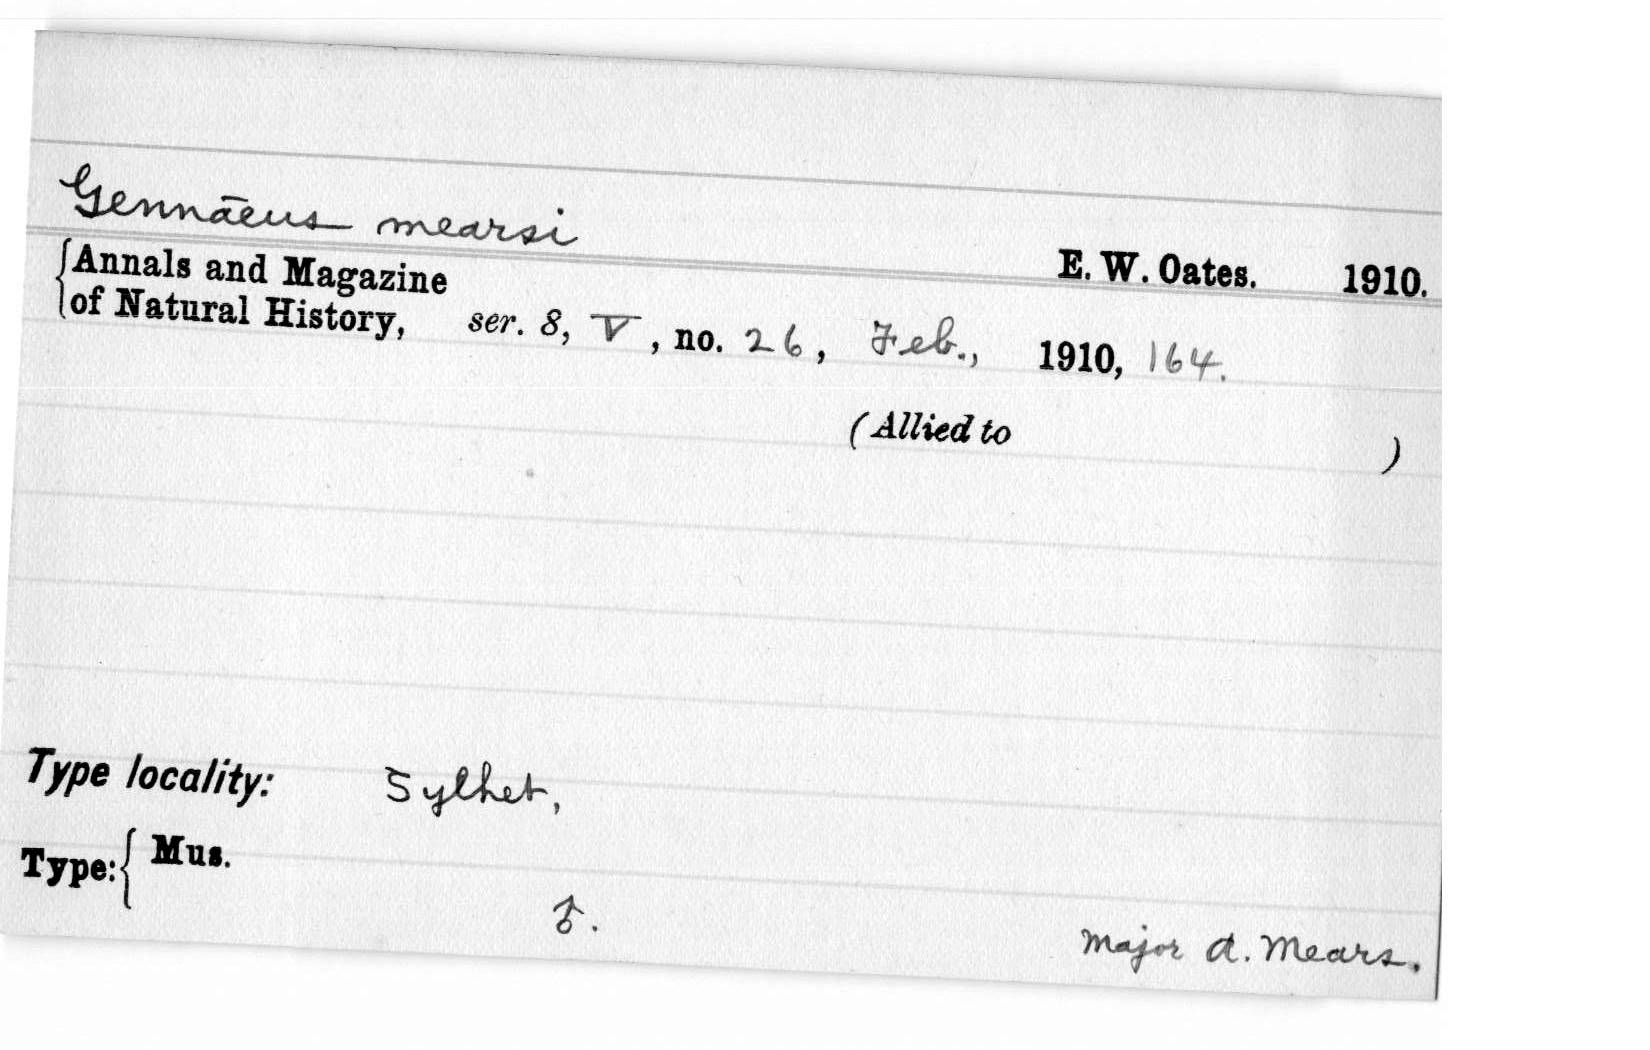 Gennāeus mearsi
E. W. Oates. 1910.
{Annals and Magazine
of Natural History, ser. 8, V, no. 26, Feb., 1910, 164.
(Allied to )
Type locality: Sylhet,
Type:{ Mus.
♂.
Major A. Mears.